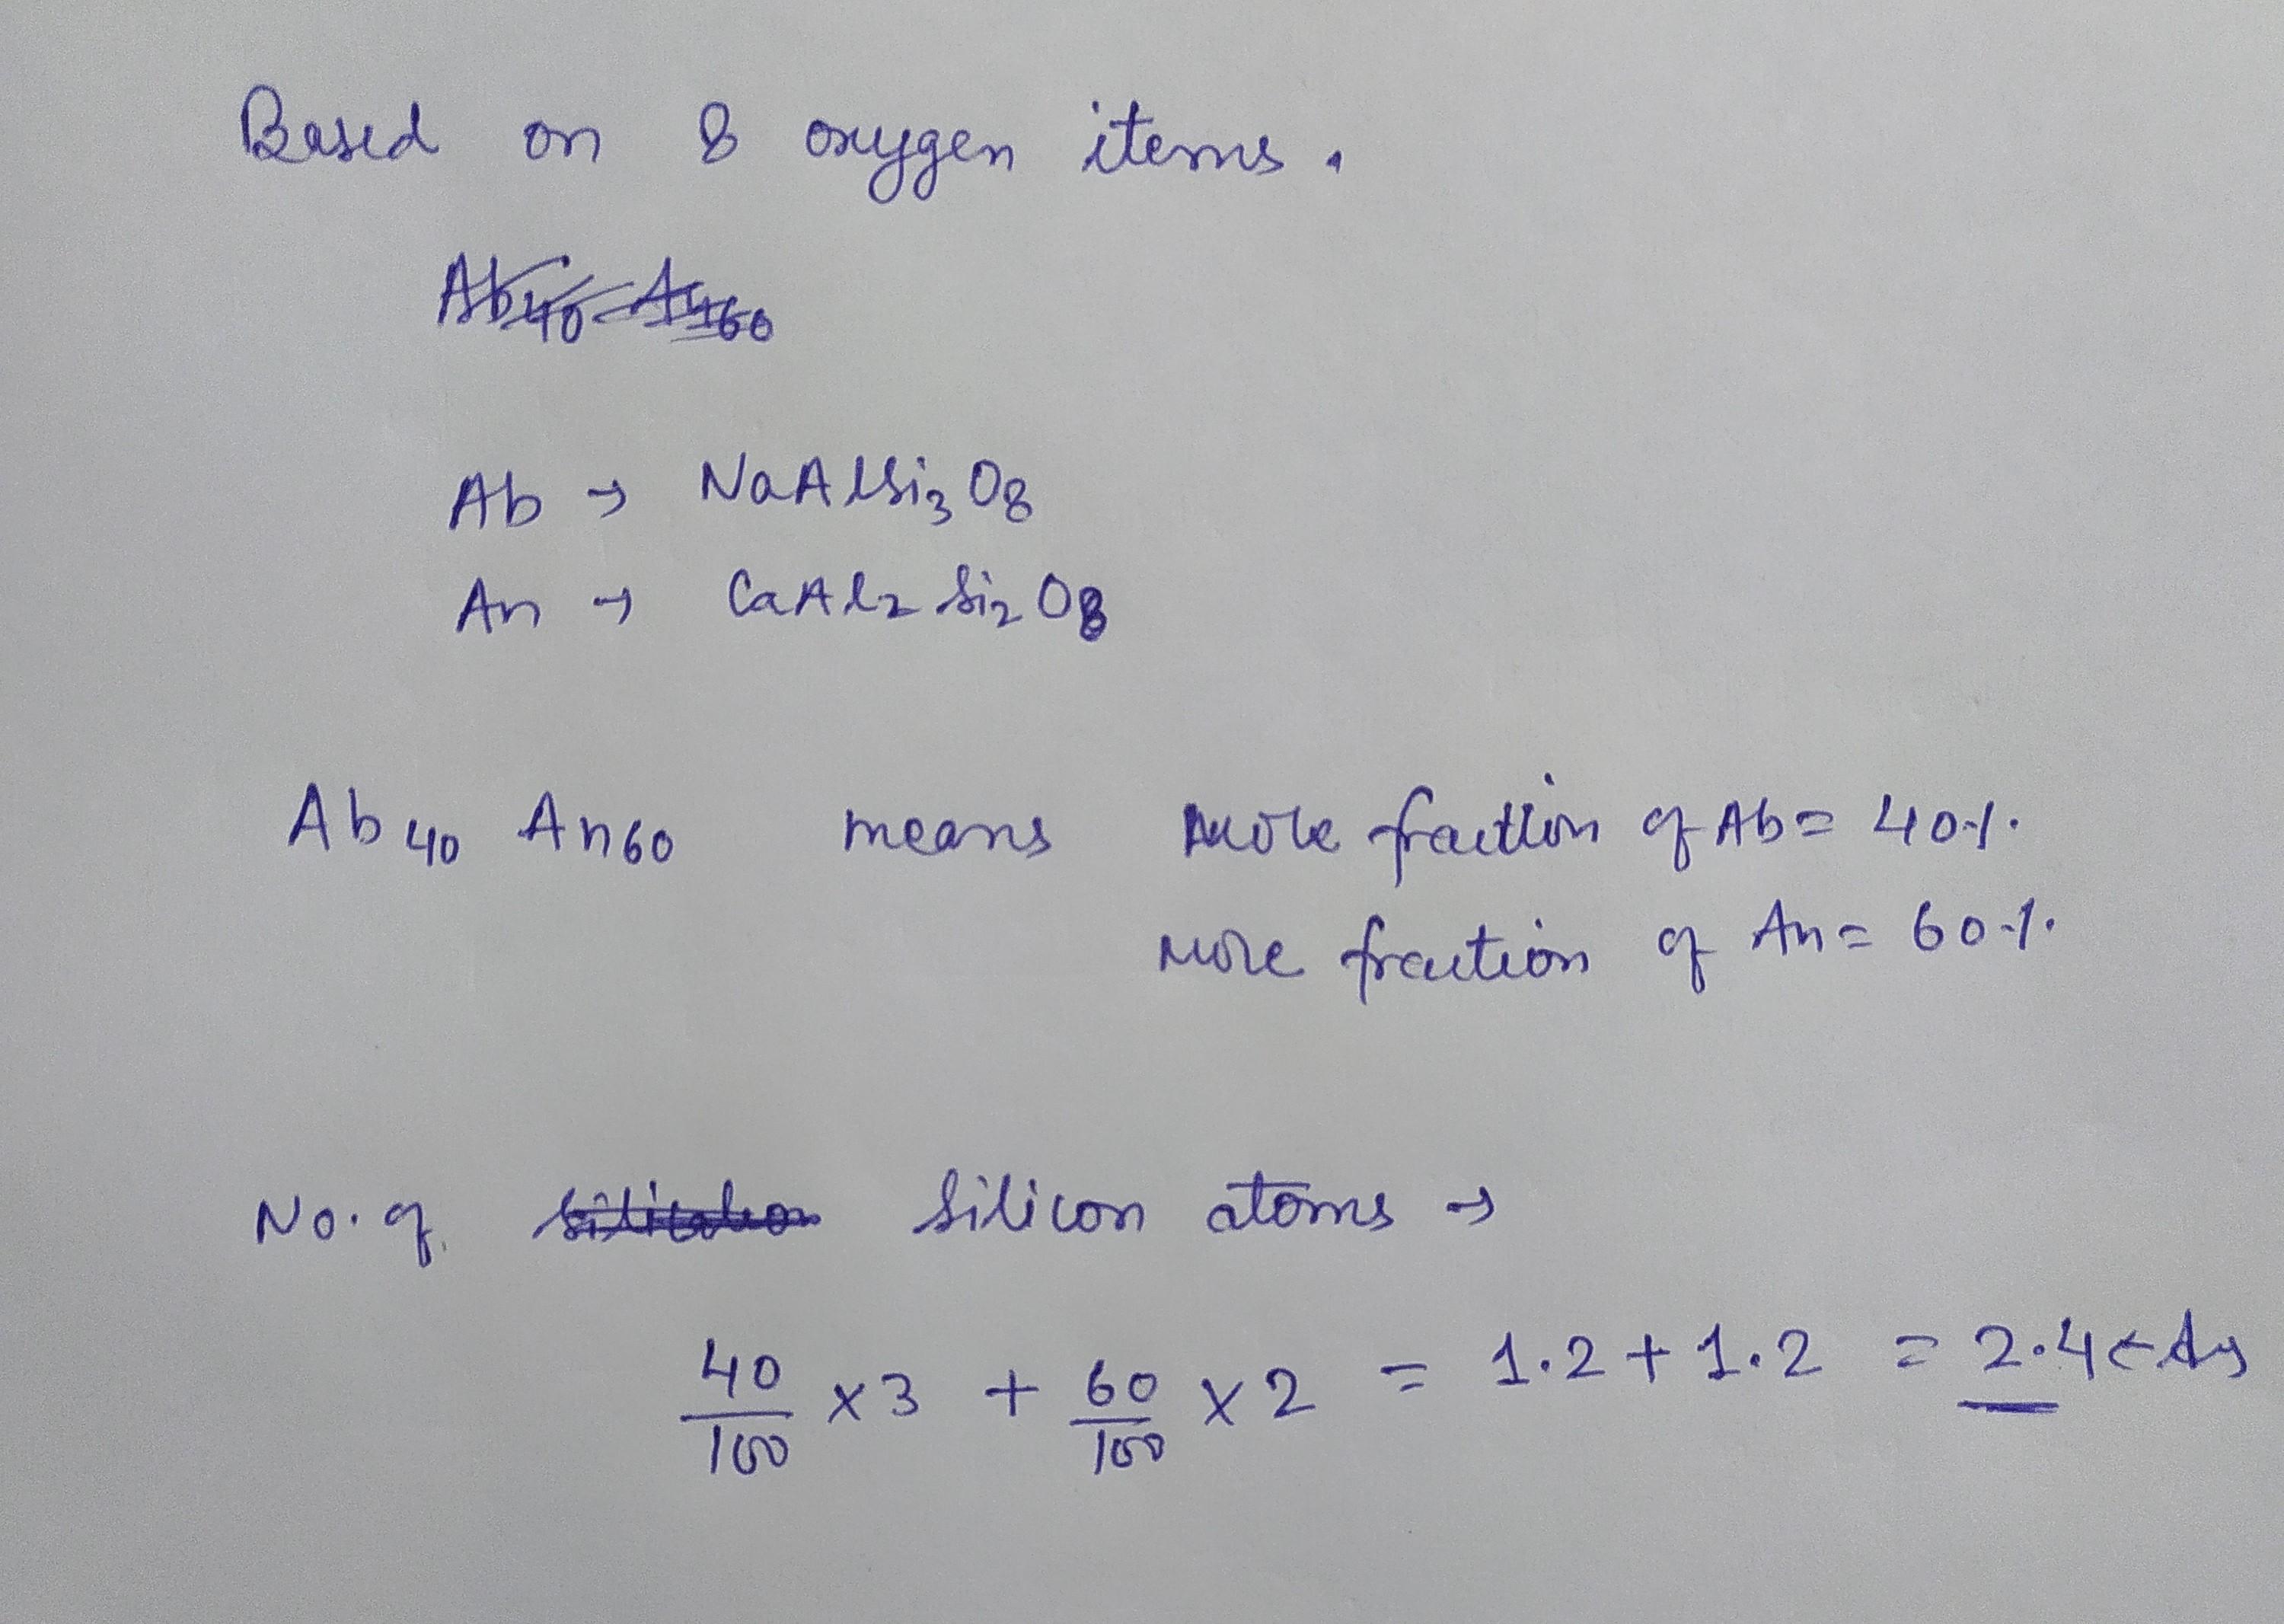 Based on 8 oxygen items.
Ab40 An60
Ab → NaAlSi3O8
An → CaAl2Si2O8
Ab40 An60 means mole fraction of Ab = 40%.
mole fraction of An = 60%.
No. of silicon atoms →
40/100 × 3 + 60/100 × 2 = 1.2 + 1.2 = 2.4 ← Ans